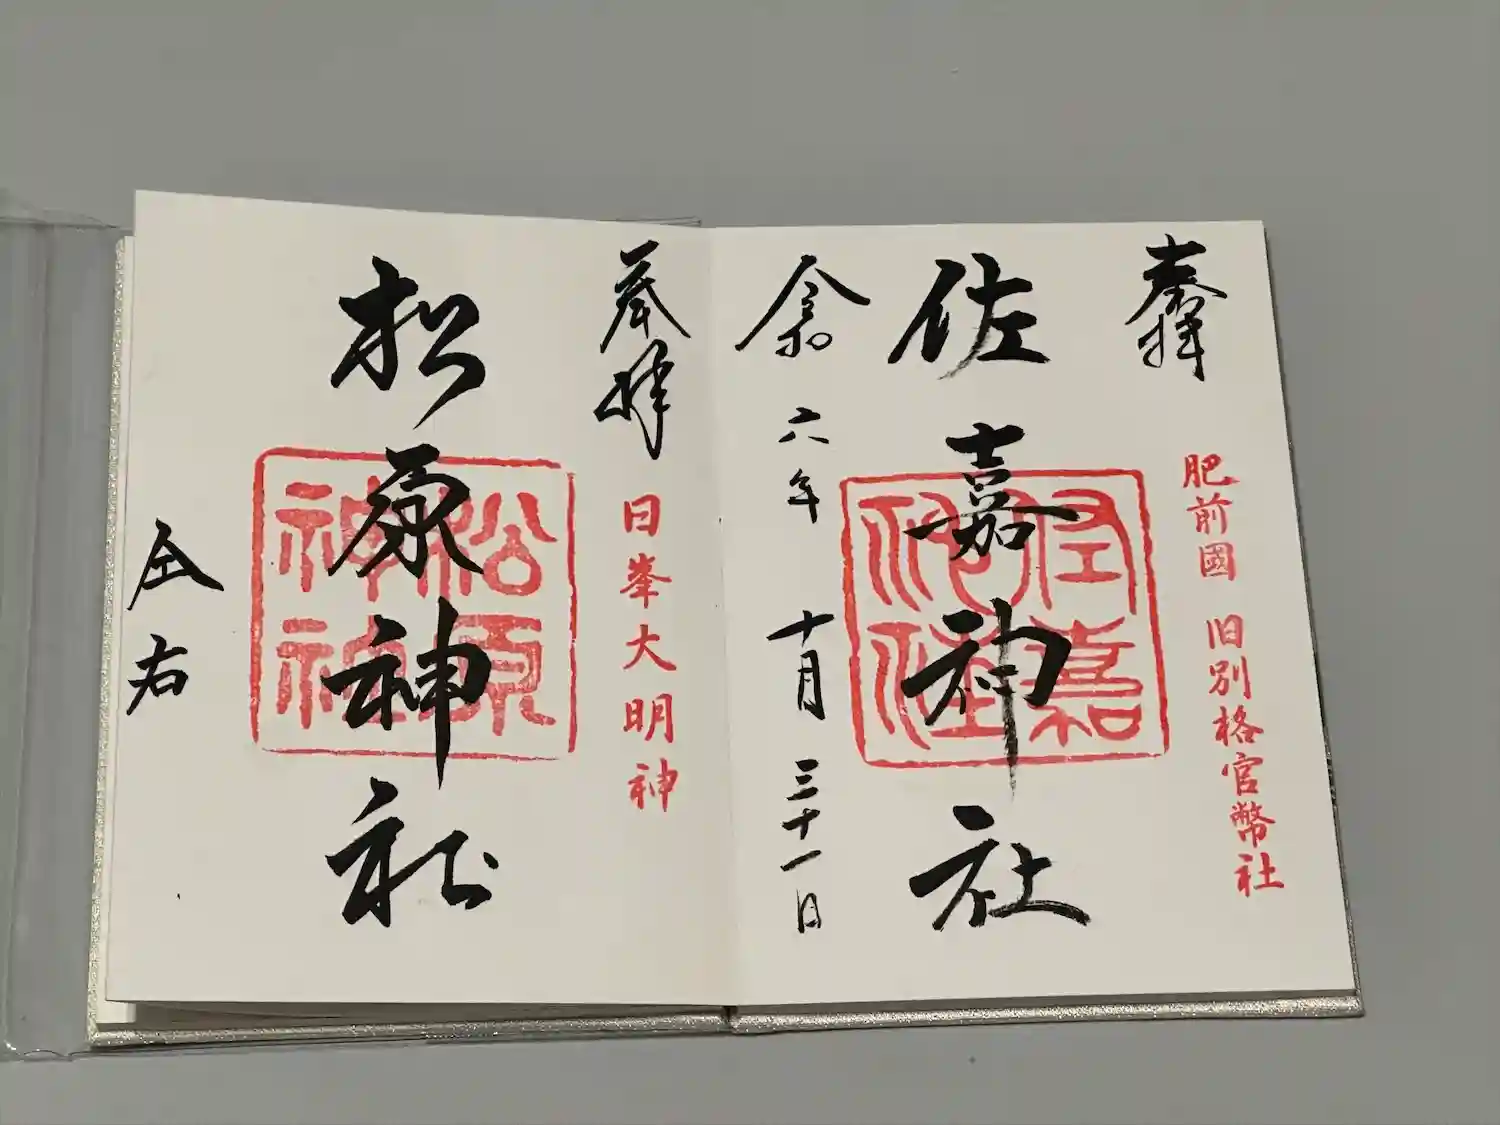 奉拝
肥前國 旧別格官幣社
佐嘉神社
佐嘉神社
令和六年 十月 三十一日
奉拝
日峯大明神
松原神社
松原神社
仝右